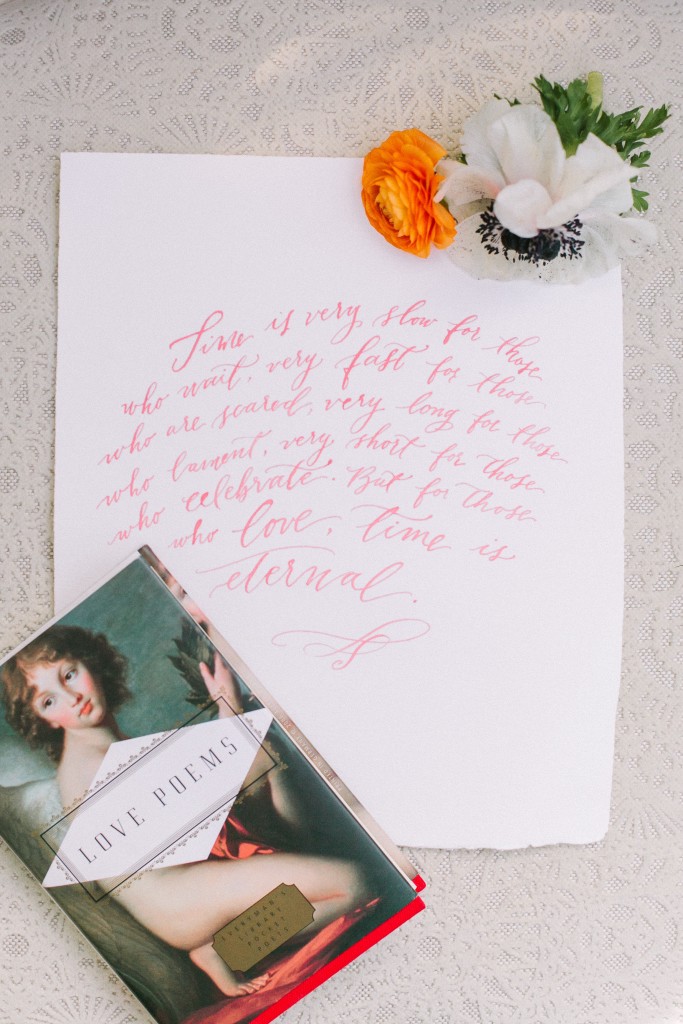 Time is very slow for those
who wait, very fast for those
who are scared, very long for those
who lament, very short for those
who celebrate. But for those
who love, time is
eternal.
LOVE POEMS
EVERYMAN'S
LIBRARY
POCKET
POETS